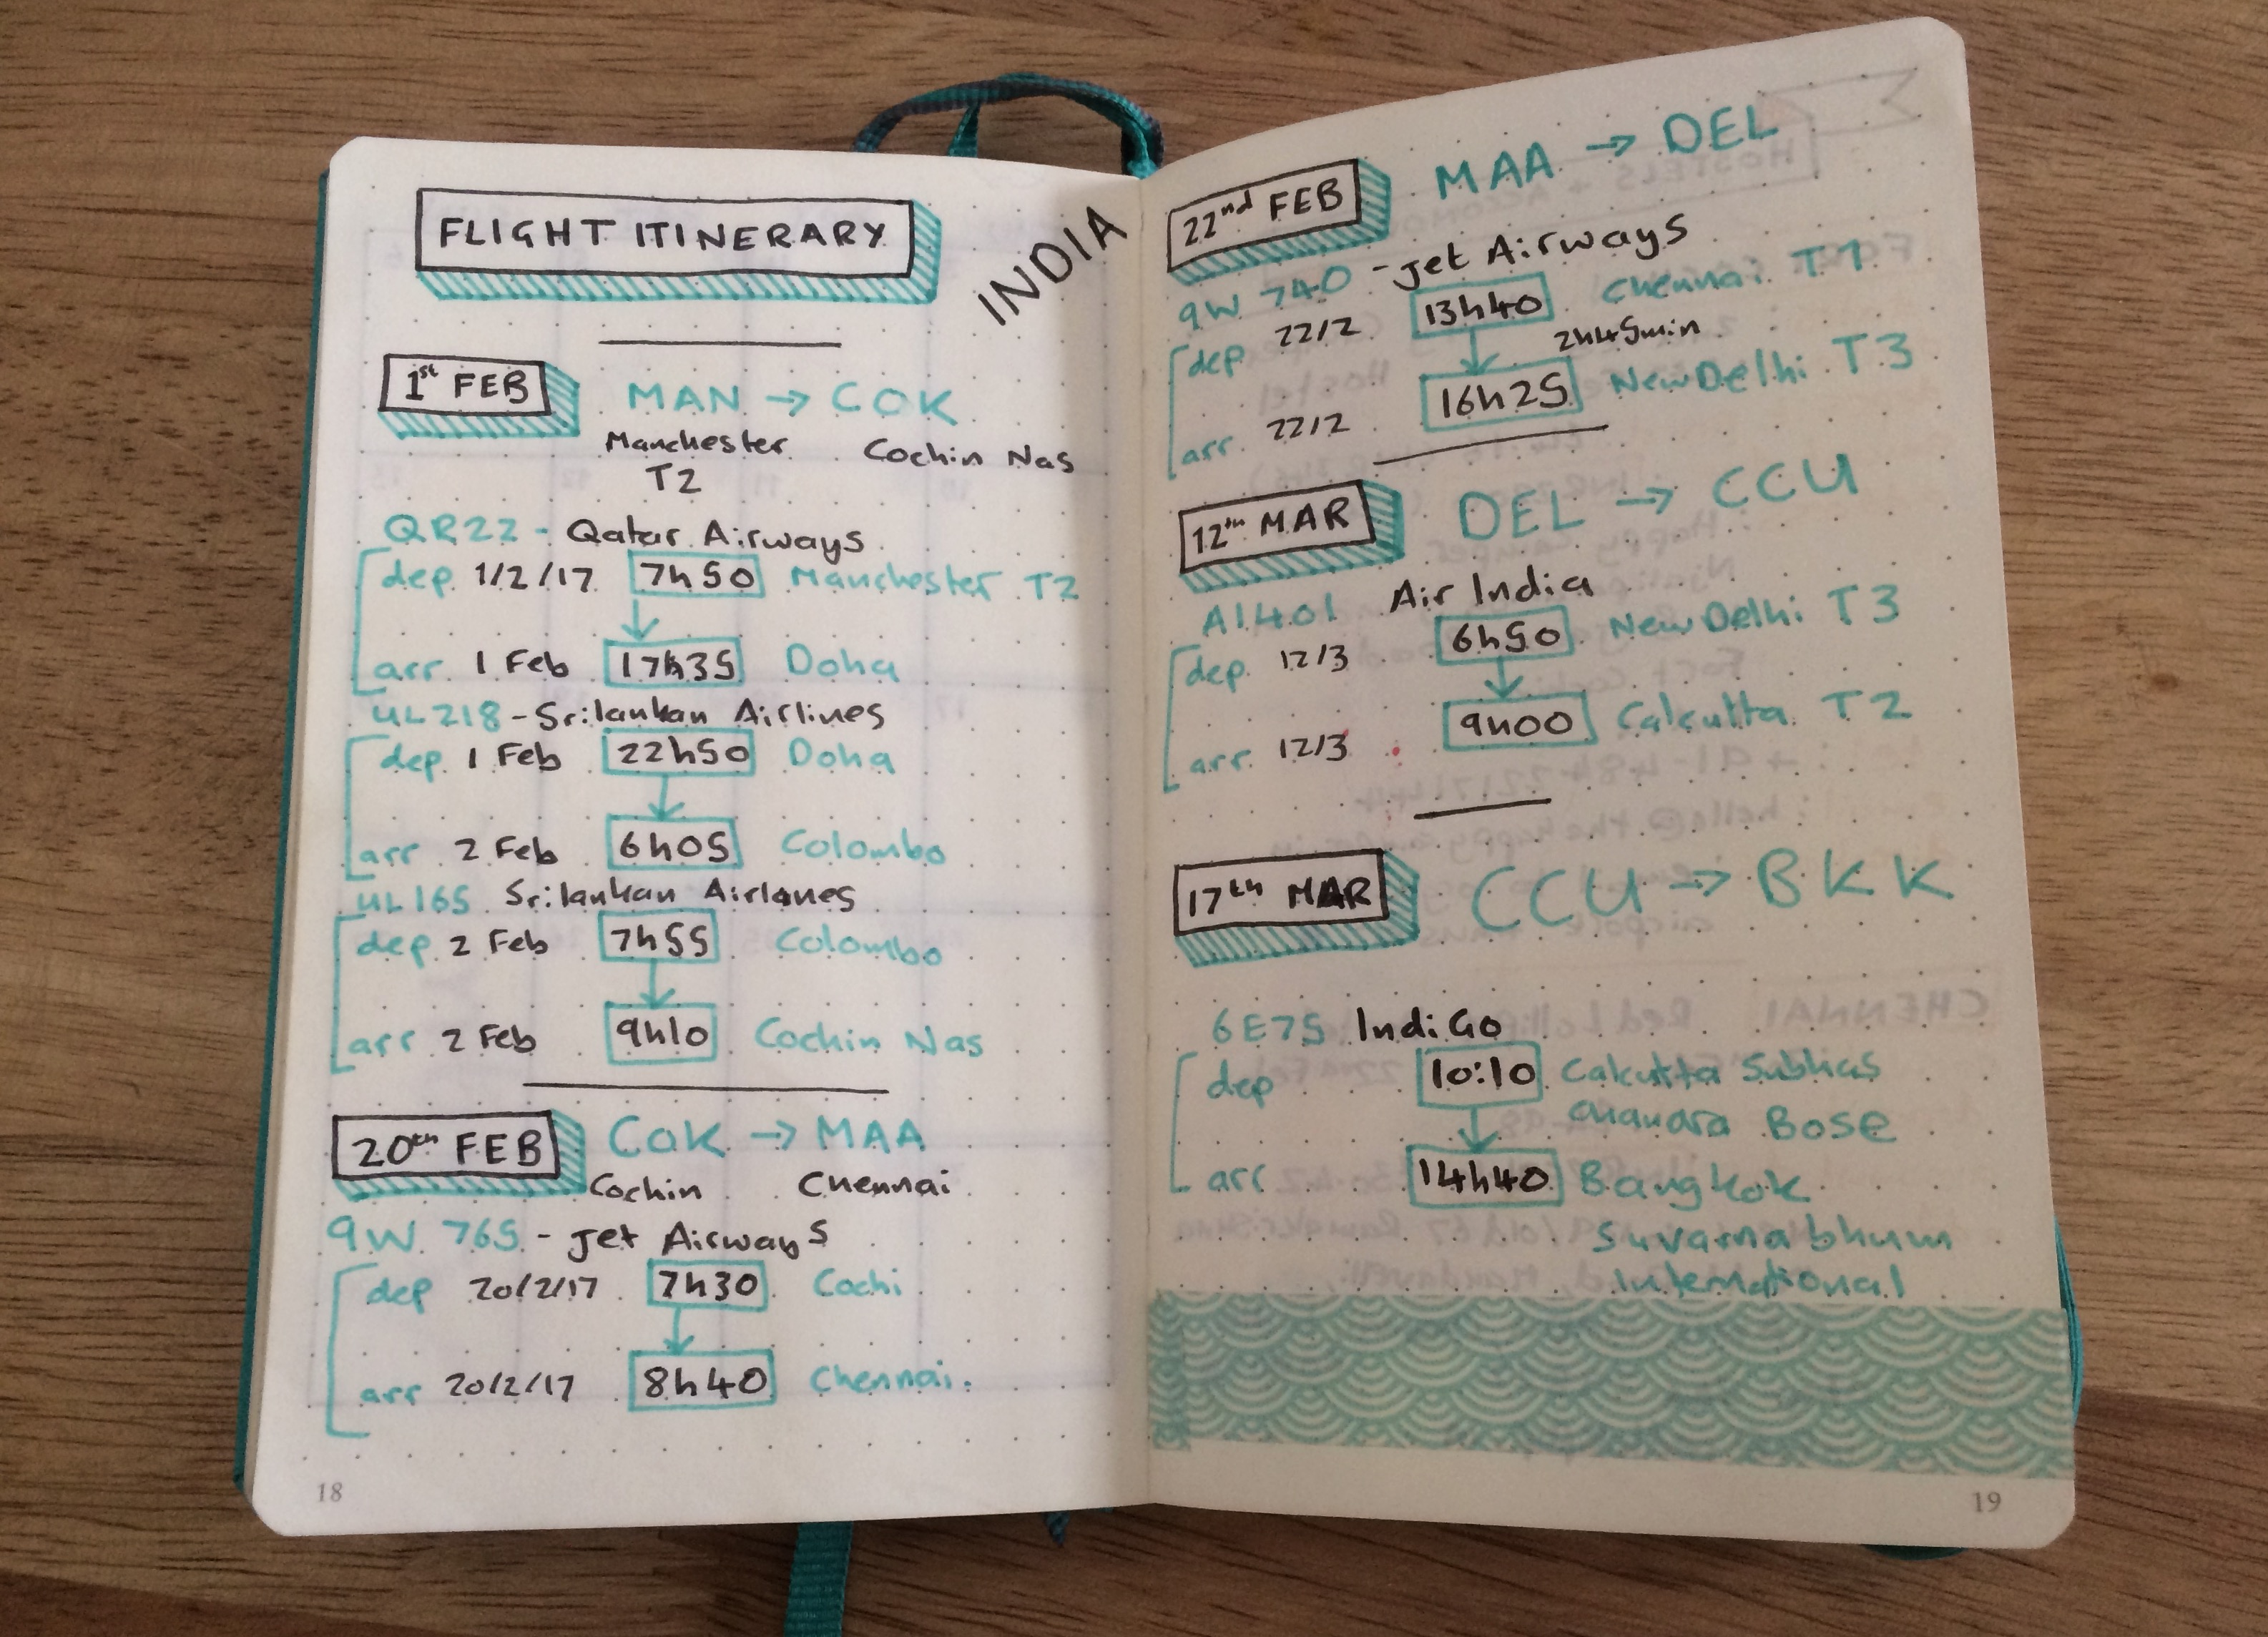 FLIGHT ITINERARY
INDIA
1st FEB
MAN → COK
Manchester Cochin Nas
T2
QR22 - Qatar Airways
dep 1/2/17 7h50 Manchester T2
arr 1 Feb 17h35 Doha
UL218 - Srilankan Airlines
dep 1 Feb 22h50 Doha
arr 2 Feb 6h05 Colombo
UL165 Srilankan Airlines
dep 2 Feb 7h55 Colombo
arr 2 Feb 9h10 Cochin Nas
20th FEB COK → MAA
Cochin Chennai
9W 765 - Jet Airways
dep 20/2/17 7h30 Cochi
arr 20/2/17 8h40 Chennai.
18
22nd FEB MAA → DEL
9W 740 - Jet Airways
dep 22/2 13h40 Chennai T1
2h45min
arr 22/2 16h25 New Delhi T3
12th MAR DEL → CCU
AI401 Air India
dep 12/3 6h50 New Delhi T3
arr 12/3 9h00 Calcutta T2
17th MAR CCU → BKK
6E75 IndiGo
dep 10:10 Calcutta Subhas
Bose
arr 14h40 Bangkok
Suvarnabhum
International
19